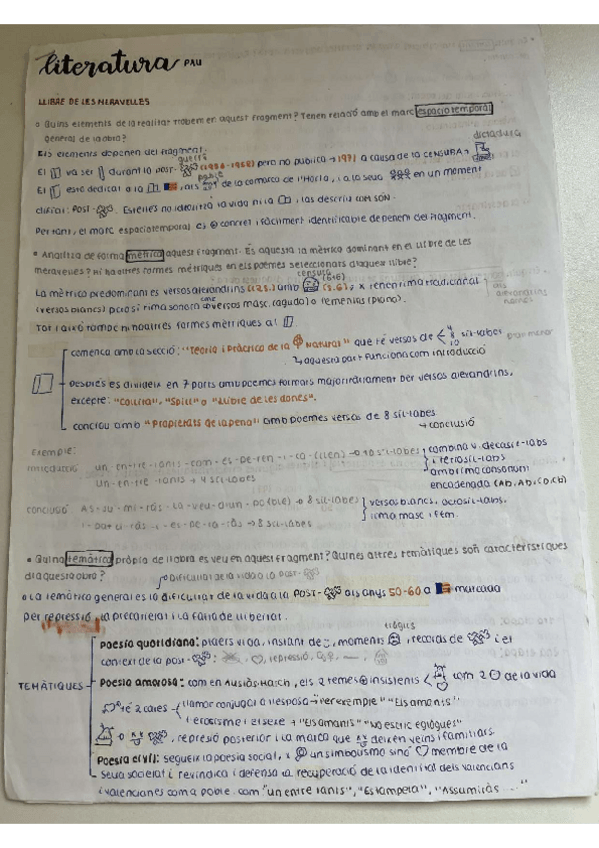 literatura PAU
LLIBRE DE LES MERAVELLES
Quins elements de la realitat trobem en aquest fragment? Tenen relació amb el marc espaciotemporal
general de l'obra?
dictadura
Els elements depenen del fragment.
guerra
El va ser durant la post- (1956-1958) però no publica → 1971 a causa de la CENSURA →
poble
El està dedicat a la , als de la comarca de l'Horta, i a la seua en un moment
clau: POST- . Estellés no idealitza la vida ni la , les descriu com SÓN.
Per tant, el marc espaciotemporal és concret i fàcilment identificable depenent del fragment.
Analitza de forma mètrica aquest fragment. És aquesta la mètrica dominant en el llibre de les
meravelles? Hi ha altres formes mètriques en els poemes seleccionats d'aquest llibre?
censura (6+6)
La mètrica predominant és versos alexandrins (12 s.) amb (s. 6), x tenen rima tradicional
(versos blancs) però sí rima sonora versos masc. (aguda) o femenins (plana).
alexandrins
Tot i això també hi ha altres formes mètriques al
comença amb la secció: "Teoria i Pràctica de la Natura" que té versos de 4 8 10 síl·labes
aquesta part funciona com introducció
Després es divideix en 7 parts amb poemes formats majoritàriament per versos alexandrins,
excepte: "Collita", "Spill" o "Llibre de les dones".
conclou amb "Propietats de la pena" amb poemes versos de 8 síl·labes
conclusió
Exemple:
un-en-tre-tants-com-es-pe-ren-i-ca-(llen) → 10 síl·labes
un-en-tre-tants → 4 síl·labes
combina v. decasíl·labs
i tetrasíl·labs
amb rima consonant
encadenada
conclusió As-su-mi-ràs-la-veu-d'un-po(ble) → 8 síl·labes
i-pa-ti-ràs-i-es-pe-ra-ràs → 8 síl·labes
versos blancs, octosíl·labs.
rima masc i fem.
Quina temàtica pròpia de l'obra es veu en aquest fragment? Quines altres temàtiques són característiques
d'aquesta obra?
Dificultat de la vida a la Post-
La temàtica general és la dificultat de la vida a la POST- als anys 50-60 a marcada
per repressió, la precarietat i la falta de llibertat.
tràgics
TEMÀTIQUES
Poesia quotidiana: plaers vida, instant de , moments , records de i el
context de la post- : , , repressió,
Poesia amorosa: com en Ausiàs March, els 2 temes insistents com 2 de la vida
té 2 cares l'amor conjugal a l'esposa → per exemple "Els amants"
l'erotisme i el sexe → "Els amants" "No escric èglogues"
o , repressió posterior i la marca que deixen veïns i familiars.
Poesia civil: segueix la poesia social, x un simbolisme sinó membre de la
seua societat i revindica i defensa la recuperació de la identitat dels valencians
i valencianes com a poble. com "un entre tants", "Estampeta", "Assumiràs ..."